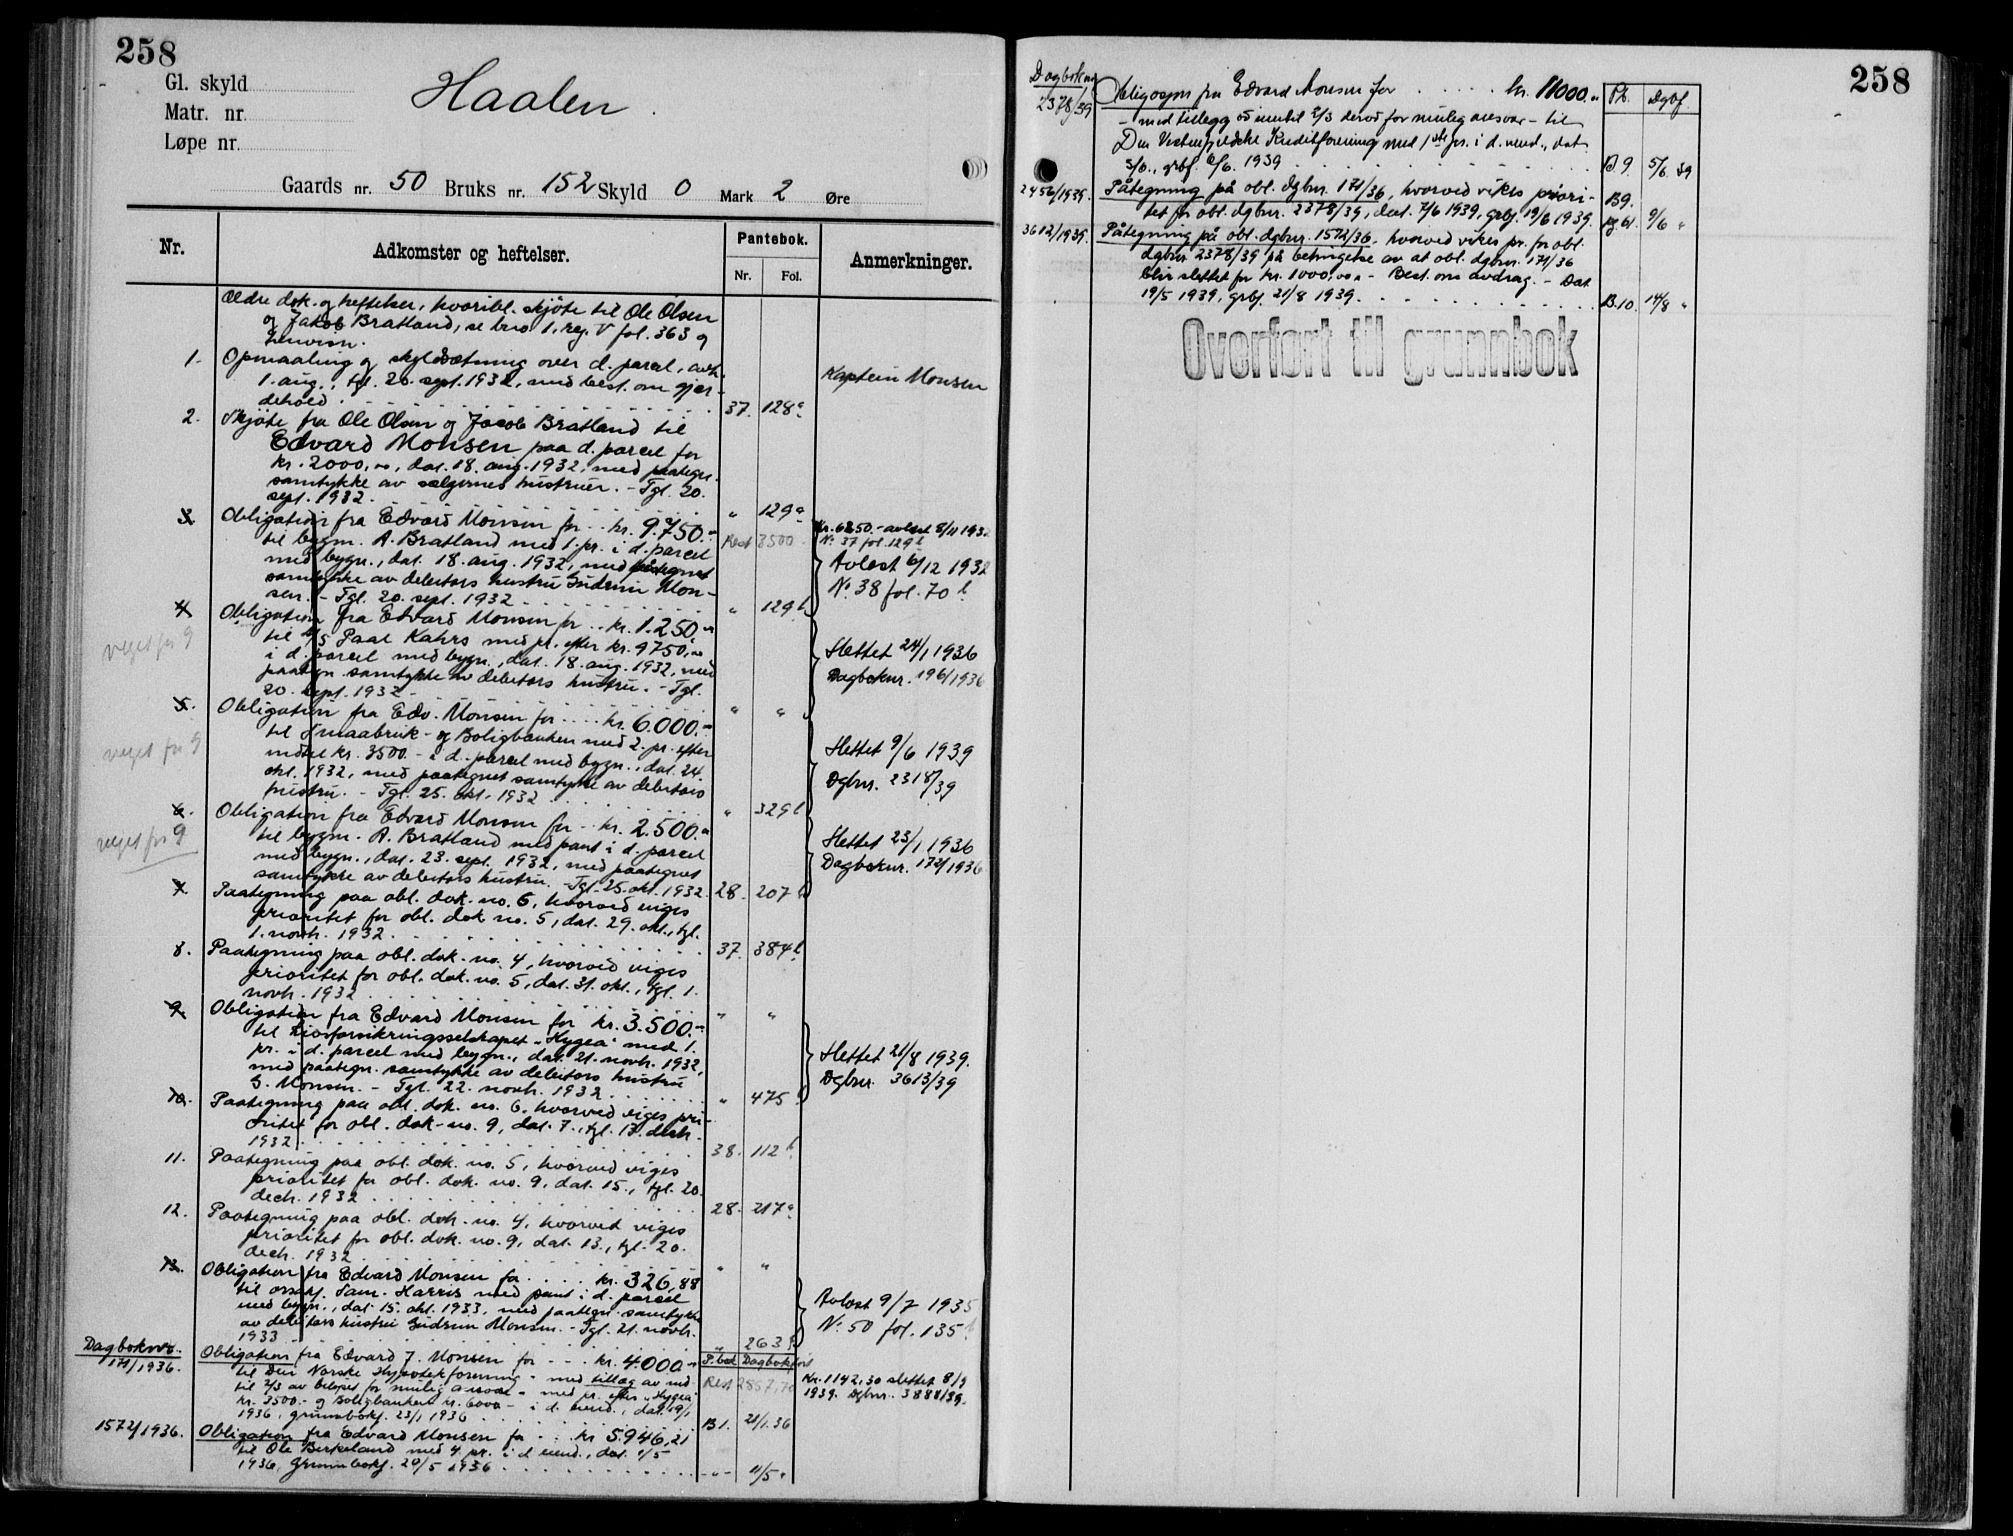 258
Gl. skyld
Haalen.
Matr. nr.
Løpe nr.
Gaards nr. 50 Bruks nr. 152 Skyld 0 Mark 2 Øre
Nr. Adkomster og heftelser. Pantebok. Anmerkninger.
Nr. Fol.
Ældre dok. og heftelser, hvoribl. skjøte til Ole Olsen
og Jakob Bratland, se bruk 1, reg. V fol. 363 og
1. Opmaaling og skyldsætning over d. parcel, avh.
1. aug., tgl. 20. sept. 1932, med best. om gjær-
dehold 37. 128a
Kaptein Monsen
2. Skjøte fra Ole Olsen og Jacob Bratland til
Edvard Monsen paa d. parcel for
kr. 2000,00, dat. 18. aug. 1932, med paategn.
samtykke av sælgernes hustruer. - Tgl. 20.
sept. 1932. " 129a
3. Obligation fra Edvard Monsen for .. kr. 9.750.-
til bygm. A. Bratland med 1. pr. i d. parcel
med bygn., dat. 18. aug. 1932, med påtegnet
samtykke av debitors hustru Gudrun Mon-
sen. - Tgl. 20. sept. 1932 " 129b
Rest 3500
Kr. 6250.- avløst 8/11 1932
No 37 fol. 129b
Avløst 6/12 1932
No 38 fol. 70b
4. Obligation fra Edvard Monsen for .. kr. 1.250,00
til A/S Paal Kahrs med pr. efter kr. 9750,00
i d. parcel med bygn., dat. 18. aug. 1932, med
paategn. samtykke av debitors hustru. - Tgl.
20. sept. 1932 - " "
veget for 9
Slettet 24/1 1936
Dagboknr. 196/1936
5. Obligation fra Edv. Monsen for .... kr. 6.000.-
til Smaabruk- og Boligbanken med 2. pr. efter
indtil kr. 3500.- i d. parcel med bygn., dat. 24.
okt. 1932, med paategnet samtykke av debitors
hustru. - Tgl. 25. okt. 1932 " 329b
veget for 9
Slettet 9/6 1939
Dgbnr. 2318/39
6. Obligation fra Edvard Monsen for .. kr. 2.500.-
til bygm. A. Bratland med pant i d. parcel
med bygn., dat. 23. sept. 1932, med paategnet
samtykke av debitors hustru. - Tgl. 25. okt. 1932. 28. 207
veget for 9
Slettet 23/1 1936
Dagboknr. 172/1936
7. Paategning paa obl. dok. no. 6, hvorved viges
prioritet for obl. dok no. 5, dat. 29. okt., tgl.
1. novb. 1932. 37. 384b
8. Paategning paa obl. dok. no. 4, hvorved viges
prioritet for obl. dok. no. 5, dat. 31. okt., tgl. 1.
novb. 1932 " "
9. Obligation fra Edvard Monsen for kr. 3.500.-
til Livsforsikringsselskapet "Hygea" med 1.
pr. i d. parcel med bygn., dat. 21. novb. 1932,
med paategn. samtykke av debitors hustru
G. Monsen. - Tgl. 22. novb. 1932 " 475
Slettet 21/8 1939.
Dgbnr. 3613/39
10. Paategning paa obl. dok. no. 6, hvorved viges pri-
oritet for obl. dok. no. 9, dat. 7., tgl. 13. decb.
1932 38. 112b
11. Paategning paa obl. dok. no. 5, hvorved viges
prioritet for obl. dok. no. 9, dat. 15., tgl. 20.
decb. 1932 28. 217a
12. Paategning paa obl. dok. no. 4, hvorved viges
prioritet for obl. dok. no. 9, dat. 13., tgl. 20.
decb. 1932 " "
13. Obligation fra Edvard Monsen for .... kr. 326,88
til orsakf. Sam. Harris med pant i d. parcel
med bygn., dat. 15. okt. 1933, med paategn. samtykke
av debitors hustru Gudrun Monsen. - Tgl. 21. novb.
1933 " 263b
Avløst 9/7 1935
No. 50 fol. 135b
Dagboknr. P.bok Dagbokført
171/1936. Obligation fra Edvard J. Monsen for ... kr. 4.000.-
til Den Norske Hypotekforening - med tillæg av ind-
til 2/3 av beløpet for mulig ansvar - med pr. efter "Hygea"
kr. 3500.- og Boligbanken kr. 6000.- i d. eiend., dat. 19/1
1936, grunnbokf. 23/1 1936 B 1. 21/1.36
Rest 2857,70
Kr. 1142.30 slettet 8/9
1939. Dgbnr. 3888/39.
1572/1936. Obligation fra Edvard Monsen for .. kr 5.946,21
til Ole Birkeland med 4. pr. i d eiend., dat. 1/5
1936, grunnbokf. 20/5 1936 - " - 11/5 "
258
Dagboknr.
2378/39 Obligasjon fra Edvard Monsen for ..... kr. 11000.- Pb. Dgbf
- med tillegg av inntil 2/3 derav for mulig ansvar - til
Den Vestenfjeldske Kreditforening med 1ste pr. i d. eiend., dat
5/6., grbf. 6/6. 1939 B.9. 5/6.39
2456/1939. Påtegning på obl. dgbnr. 171/36, hvorved vikes priori-
tet for obl. dgbnr. 2378/39, dat. 7/6 1939, grbf. 19/6 1939. B9. 9/6 "
3612/1939. Påtegning på obl. dgbnr. 1572/36, hvorved vikes pr. for obl.
dgbnr 2378/39 på betingelse av at obl. dgbnr. 171/36
blir slettet for kr. 1000,00. - Best. om avdrag. - Dat.
19/5 1939, grbf. 21/8 1939. B.10. 14/8 "
Overført til grunnbok